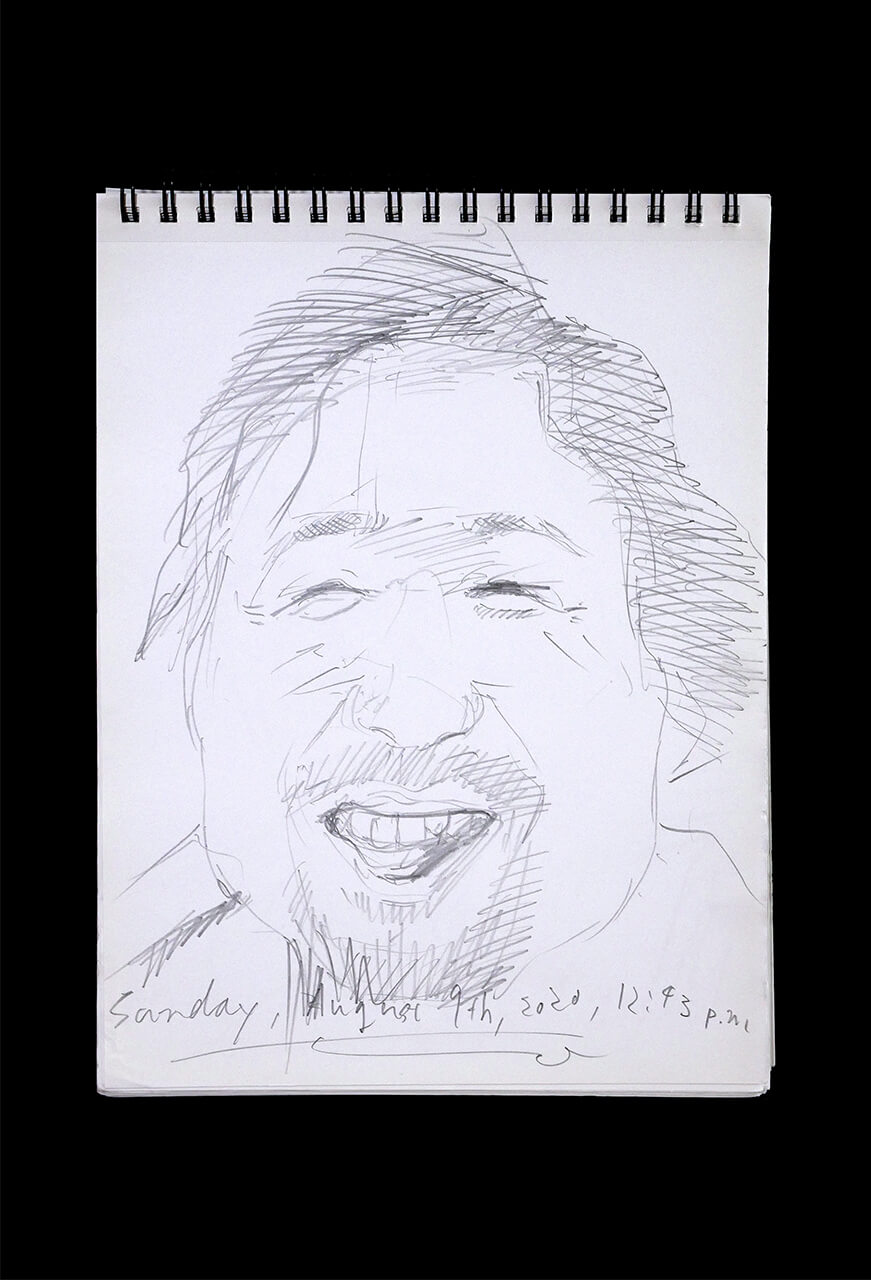 Sunday, August 9th, 2020, 12:43 p.m.